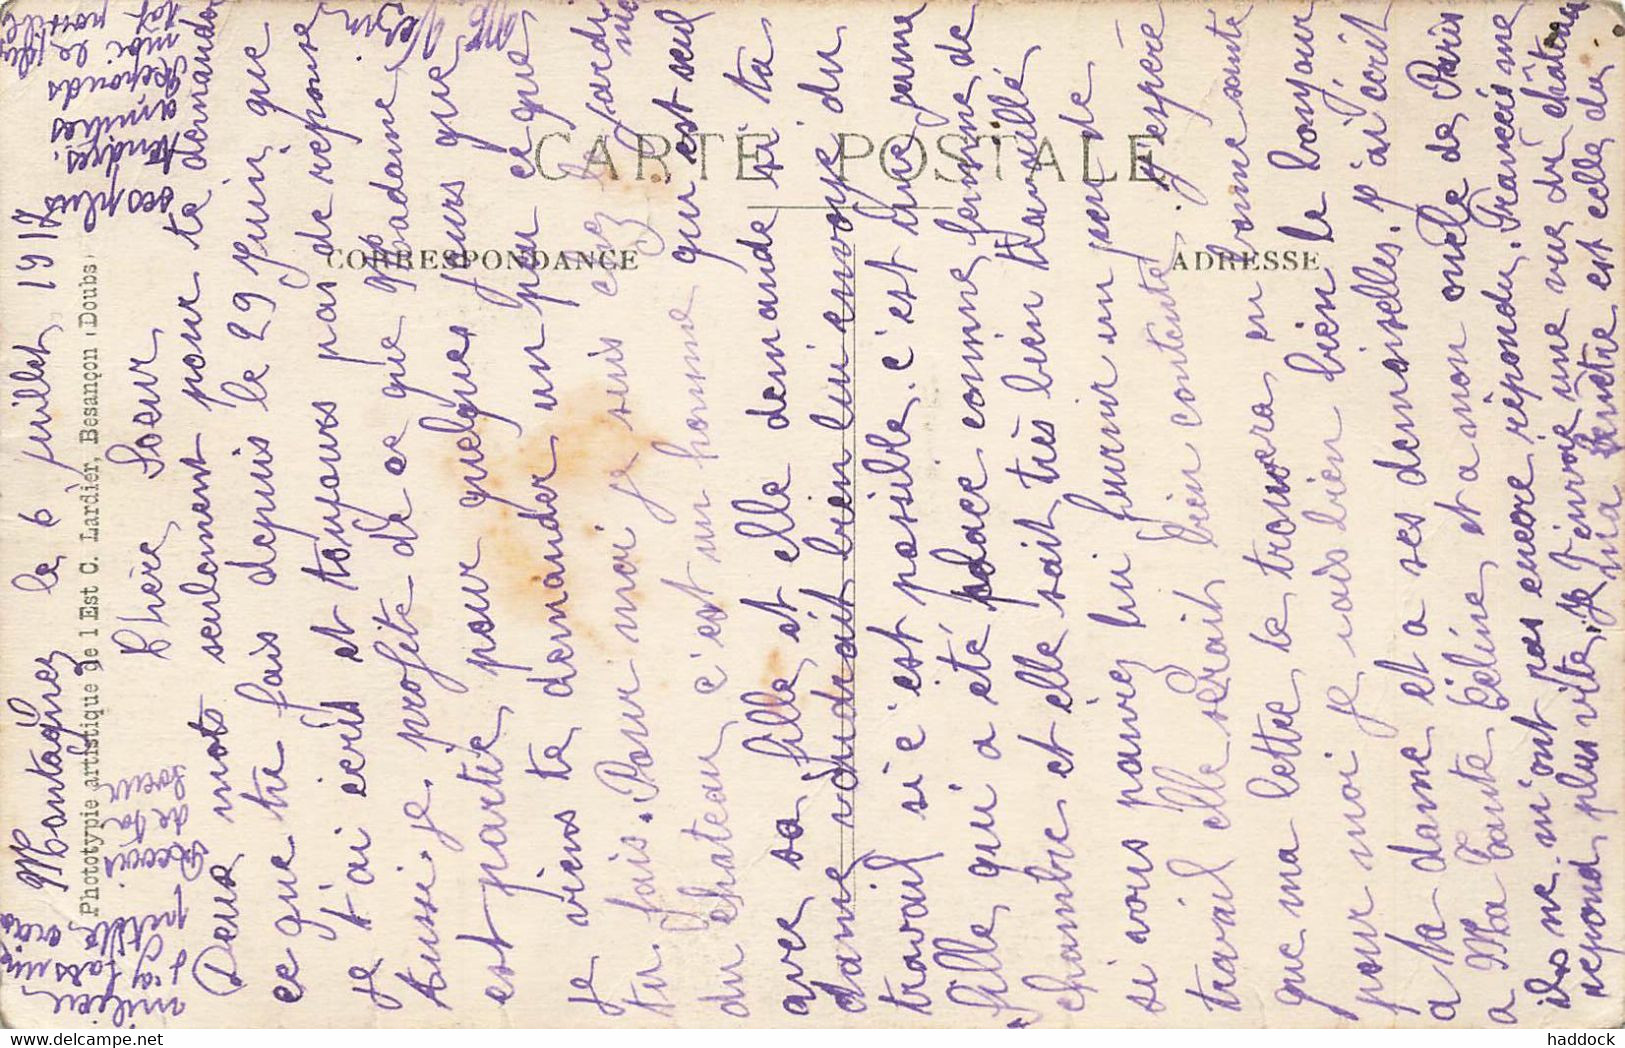 Montagney le 6 juillet 1917
Chère Soeur
Deux mots seulement pour te demander
ce que tu fais depuis le 29 Juin que
je t'ai ecris et toujours pas de reponse
Aussi je profite de ce que Madame
est partie pour quelques jours que
je viens te demander un peu ce que
tu fais. Pour moi je suis chez
du chateau, c'est un homme qui est seul
avec sa fille et elle demande si ta
dame voudrait bien lui envoye du
travail si c'est possible. c'est une jeune
fille qui a été placé comme femme de
chambre et elle sait très bien travaillé
si vous pouvez lui fournir un peu de
travail elle serait bien contente. J'espère
que ma lettre te trouvera en bonne sante
pour moi je vais bien bien le bonjour
a ta dame et a ses demoiselles. J'ai ecrit
a Ma Tante Céline et a mon oncle de Paris
ils ne m'ont pas encore répondu. Francois me
repond plus vite. Je t'envoie une vue du château
ma fenêtre est celle du
ses plus
tendres
amities
Reponds
moi le
plus
possible
Recois
de ta
soeur
CARTE POSTALE
CORRESPONDANCE
ADRESSE
Phototypie artistique de l'Est C. Lardier, Besançon (Doubs)
haddock